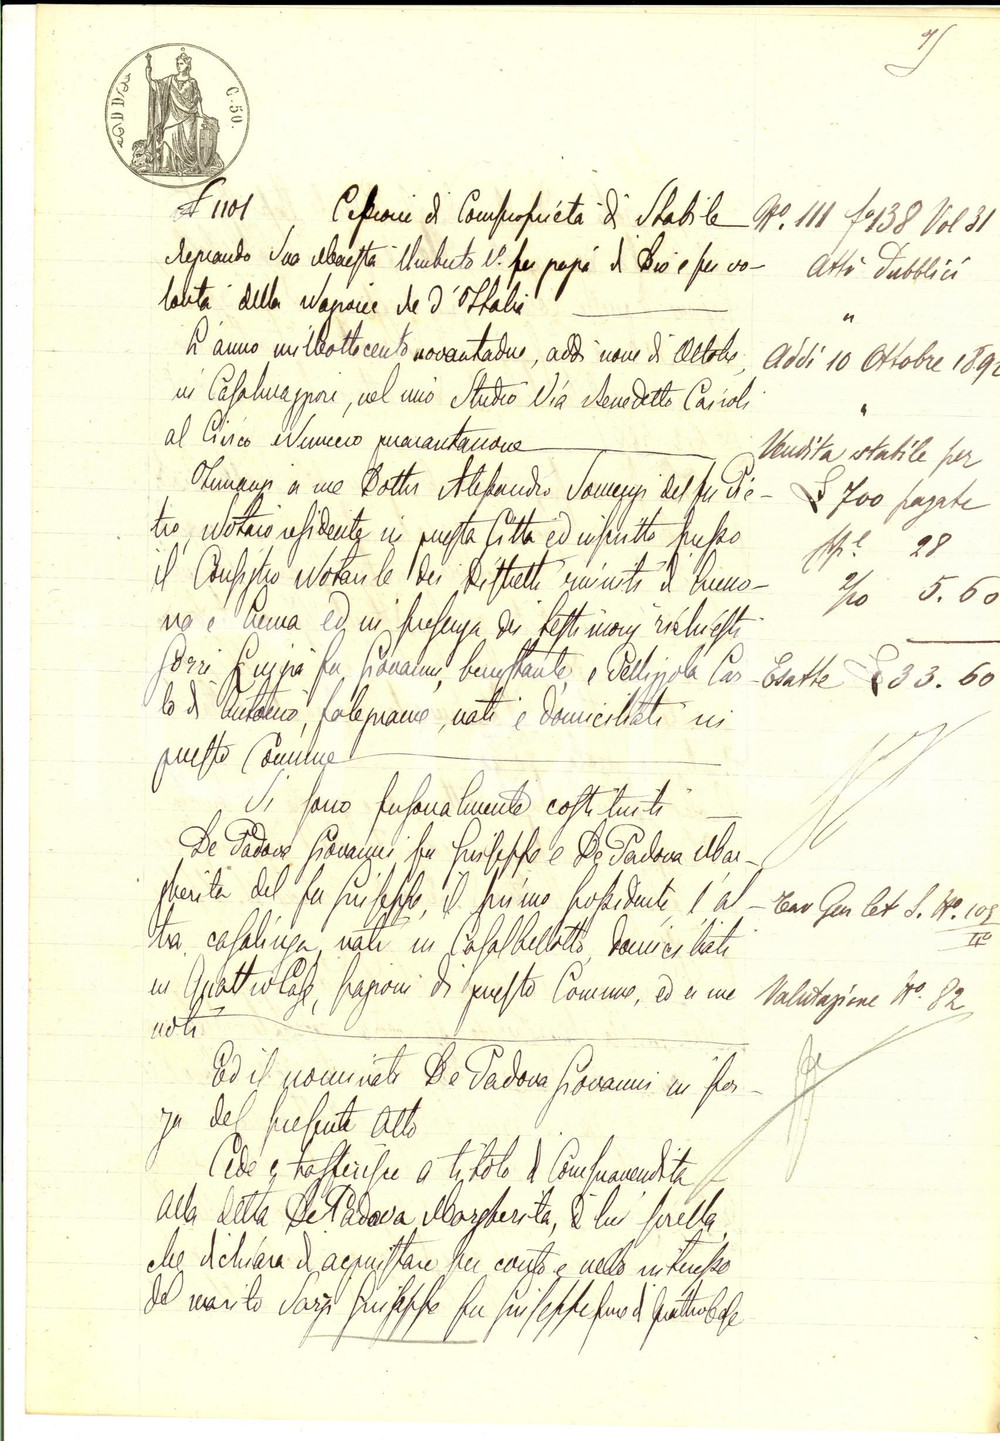 75
C. 50.
N 1101
Cessione di Comproprietà di Stabile
regnando Sua Maestà Umberto Iº. per grazia di Dio e per vo-
lontà della Nazione Re d'Italia
L'anno milleottocento novantadue, addì nove di Ottobre,
in Casalmaggiore, nel mio Studio Via Benedetto Cairoli
al Civico Numero quarantanove
Innanzi a me Dottor Alessandro Somenzi del fu Pie-
tro, Notaio residente in questa Città ed inscritto presso
il Consiglio Notarile dei Distretti riuniti di Cremo-
na e Crema ed in presenza dei testimonj richiesti
fu Giovanni, benestante, e Pellizzola Car-
lo di Antonio, falegname, nati e domiciliati in
questo Comune
Si sono personalmente costituiti
De Padova Giovanni fu Giuseppe e De Padova Mar-
gherita del fu Giuseppe, il primo possidente, l'al-
tra casalinga, nati in Casalbellotto, domiciliati
in Quattrocase, frazioni di questo Comune, ed a me
noti
Ed il nominato De Padova Giovanni in for-
za del presente Atto
Cede e trasferisce a titolo di Compravendita
alla detta De Padova Margherita, di lui sorella,
che dichiara di acquistare per conto e nello interesse
del marito Sarzi Giuseppe fu Giuseppe pure di Quattrocase
Nº. 111 fº 138 Vol 31
Atti Pubblici
"
Addi 10 Ottobre 1892
"
Vendita stabile per
£ 700 pagate
28
2/10 5. 60
Esatte £ 33. 60
Tav Gen Let S. Nº. 105
IIº
Valutazione Nº. 82